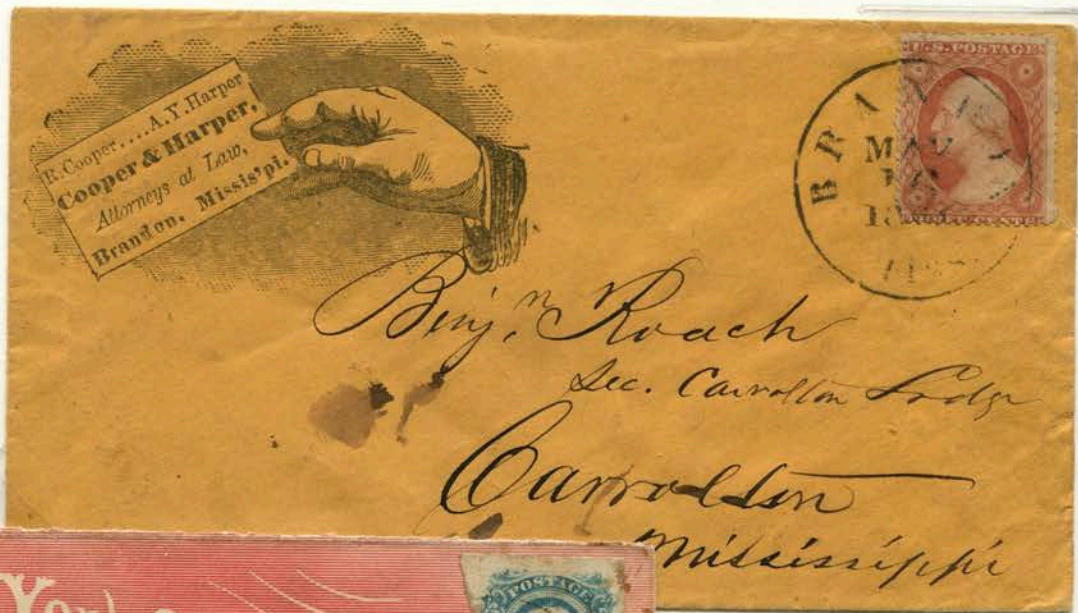 E. Cooper....A.Y. Harper
Cooper & Harper,
Attorneys at Law,
Brandon, Missis'pi.
U.S. POSTAGE
BRA
MAY
Benjn. Roach
Sec. Carrolton Lodge
Carrollton
Mississippi
POSTAGE